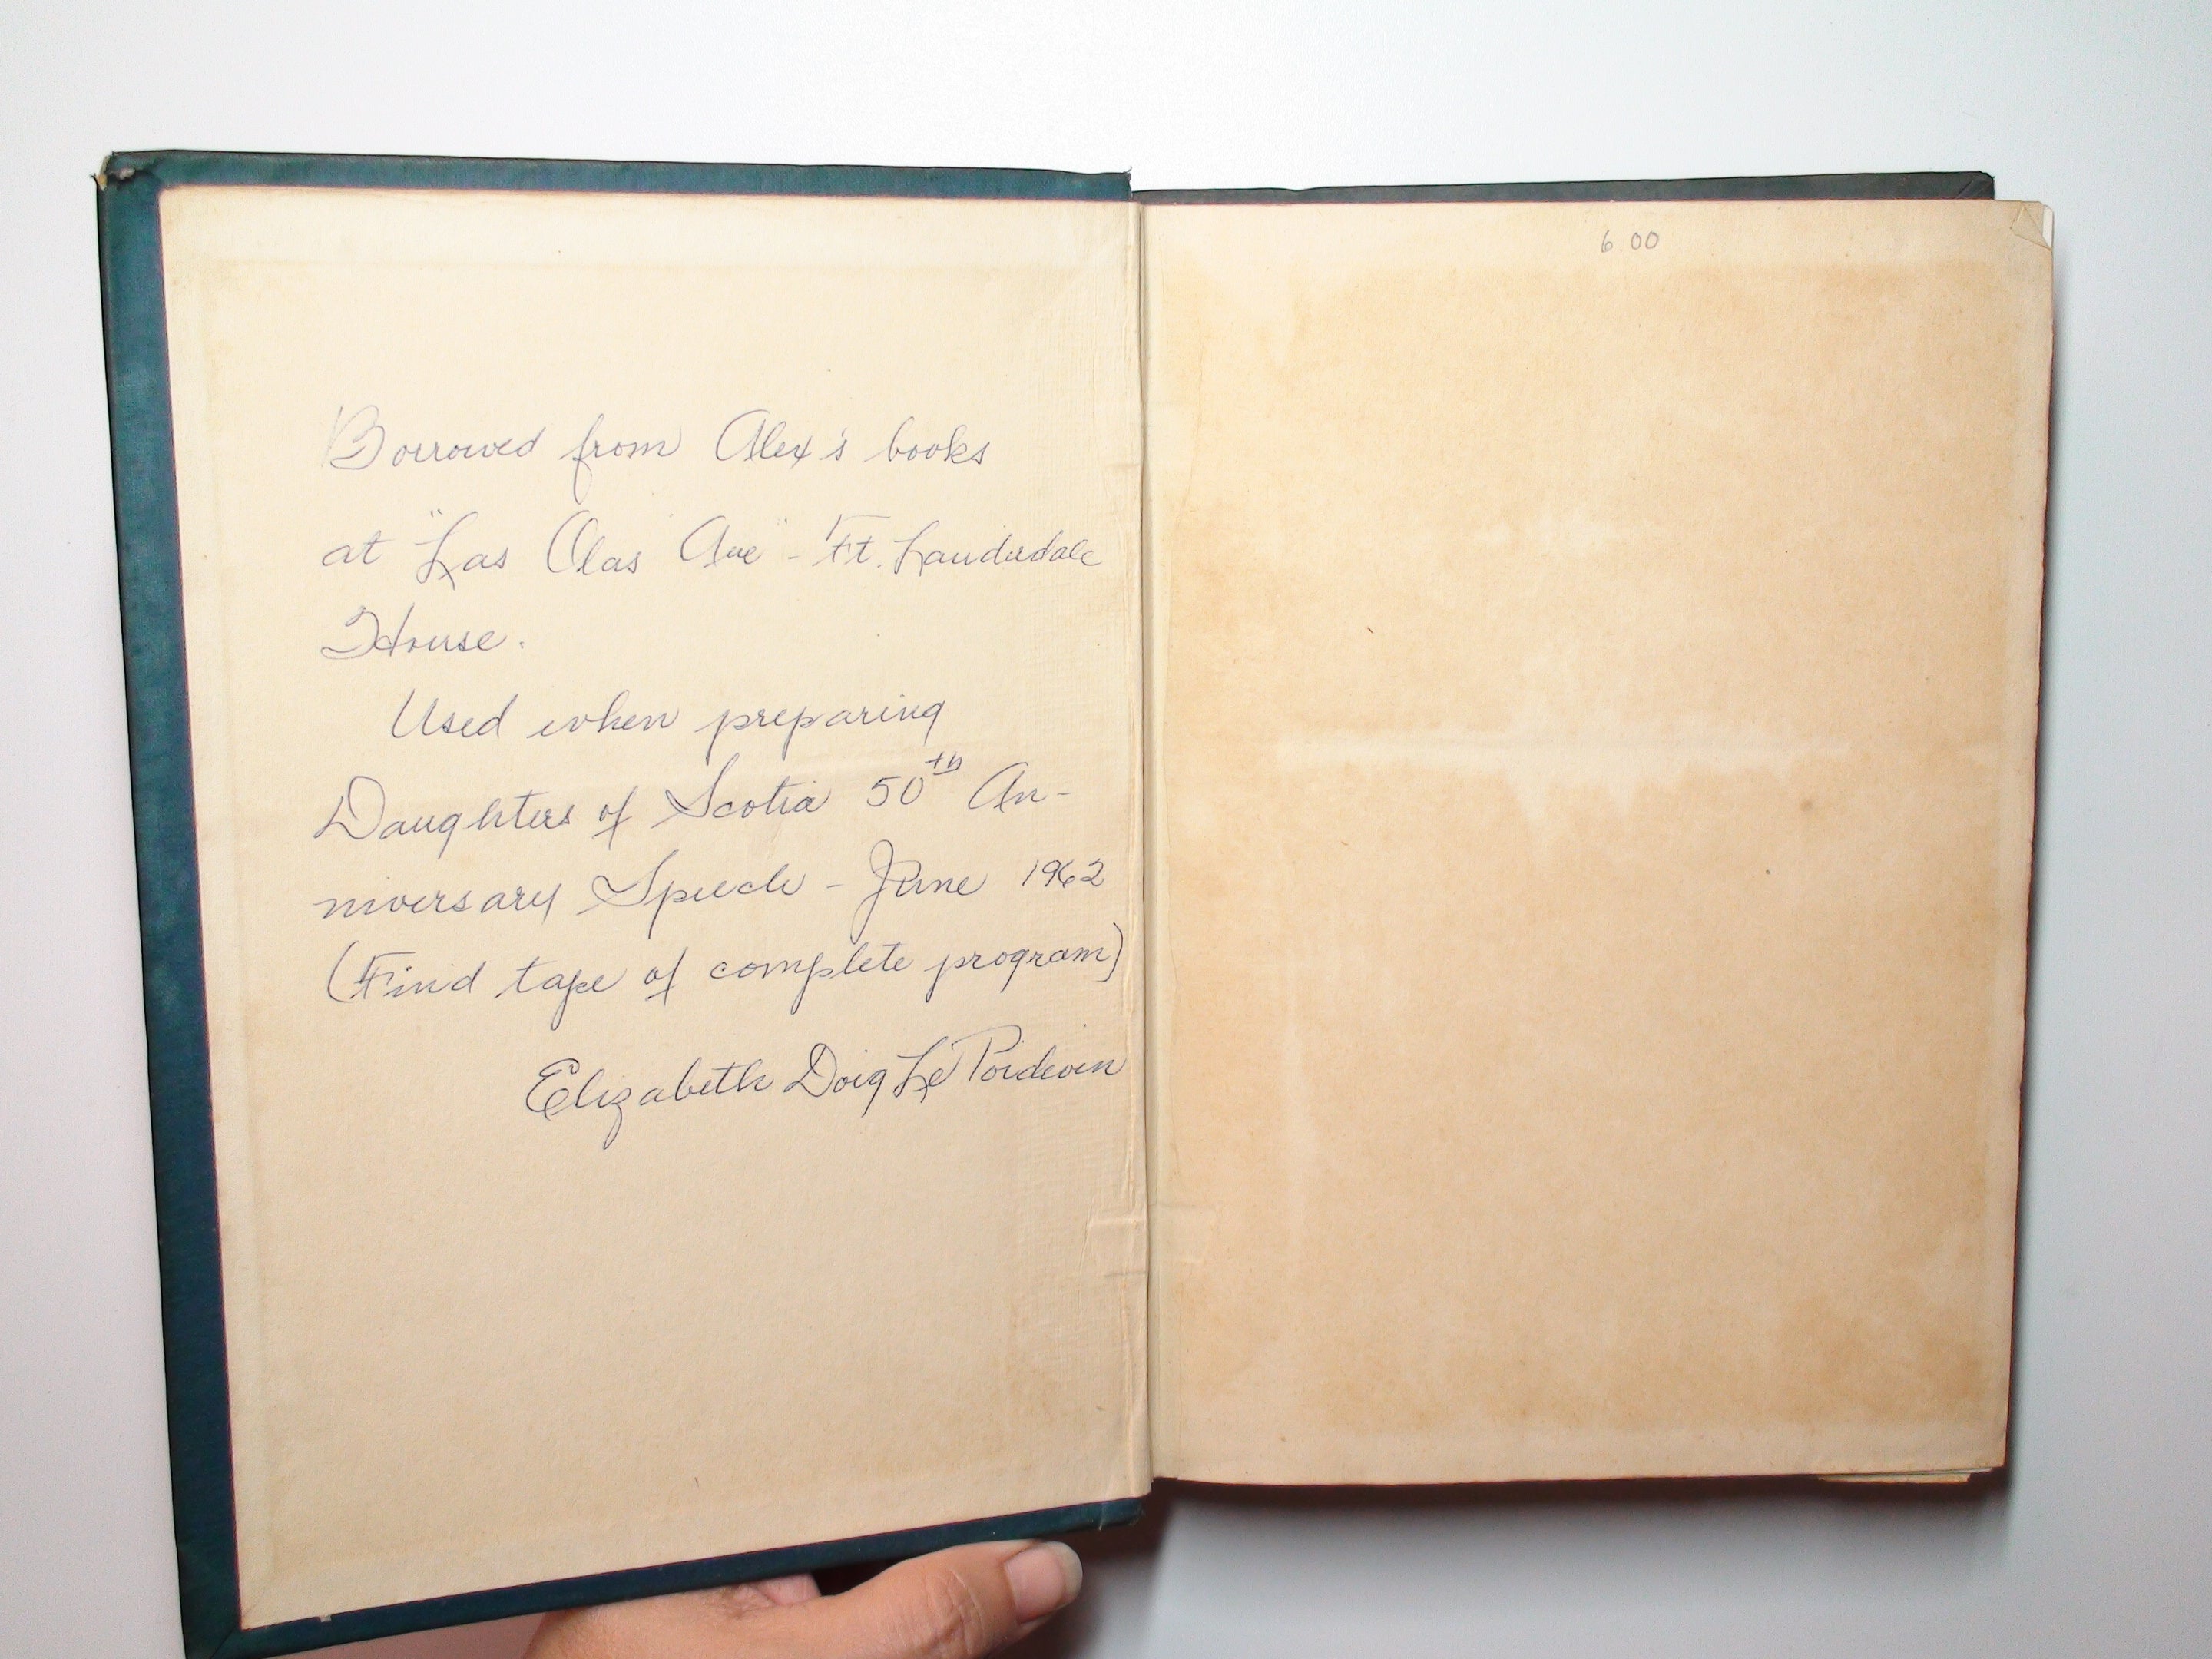 Borrowed from Alex's books
at "Las Olas Ave" - Ft. Lauderdale
House.
Used when preparing
Daughters of Scotia 50th An-
niversary Speech - June 1962
(Find tape of complete program)
Elizabeth Doig Le Poidevin
6.00